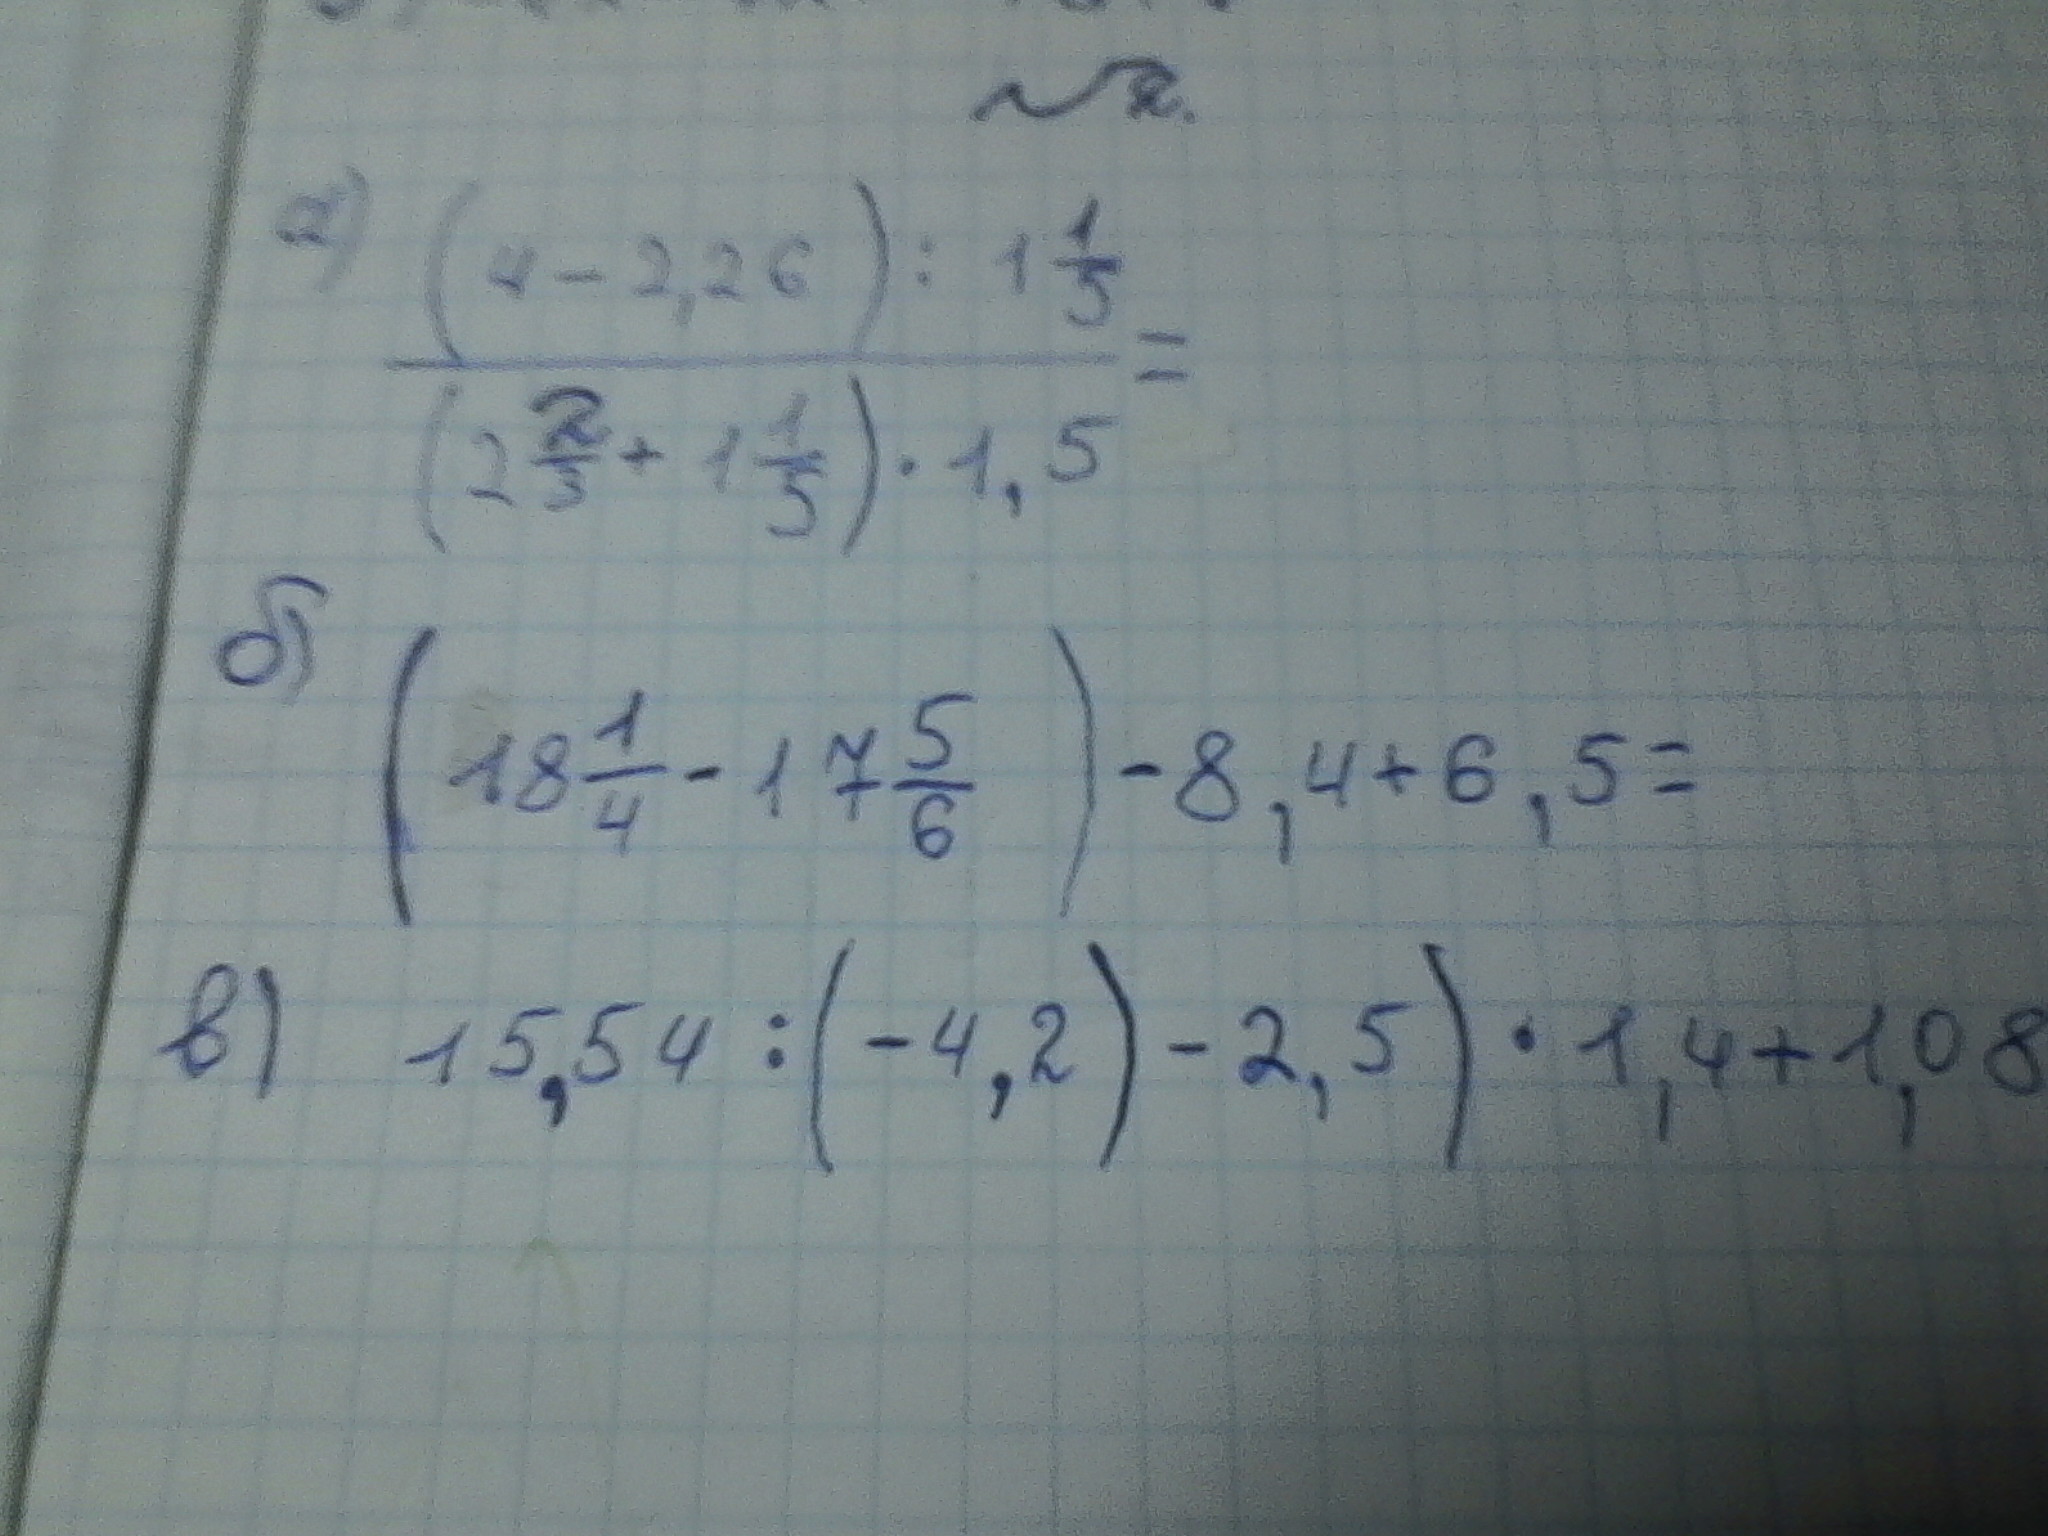 №2.
а) (4 - 2,26) : 1 1/5
=
(2 2/3 + 1 1/5) · 1,5
б) (18 1/4 - 17 5/6) - 8,4 + 6,5 =
в) 15,54 : (-4,2) - 2,5) · 1,4 + 1,08